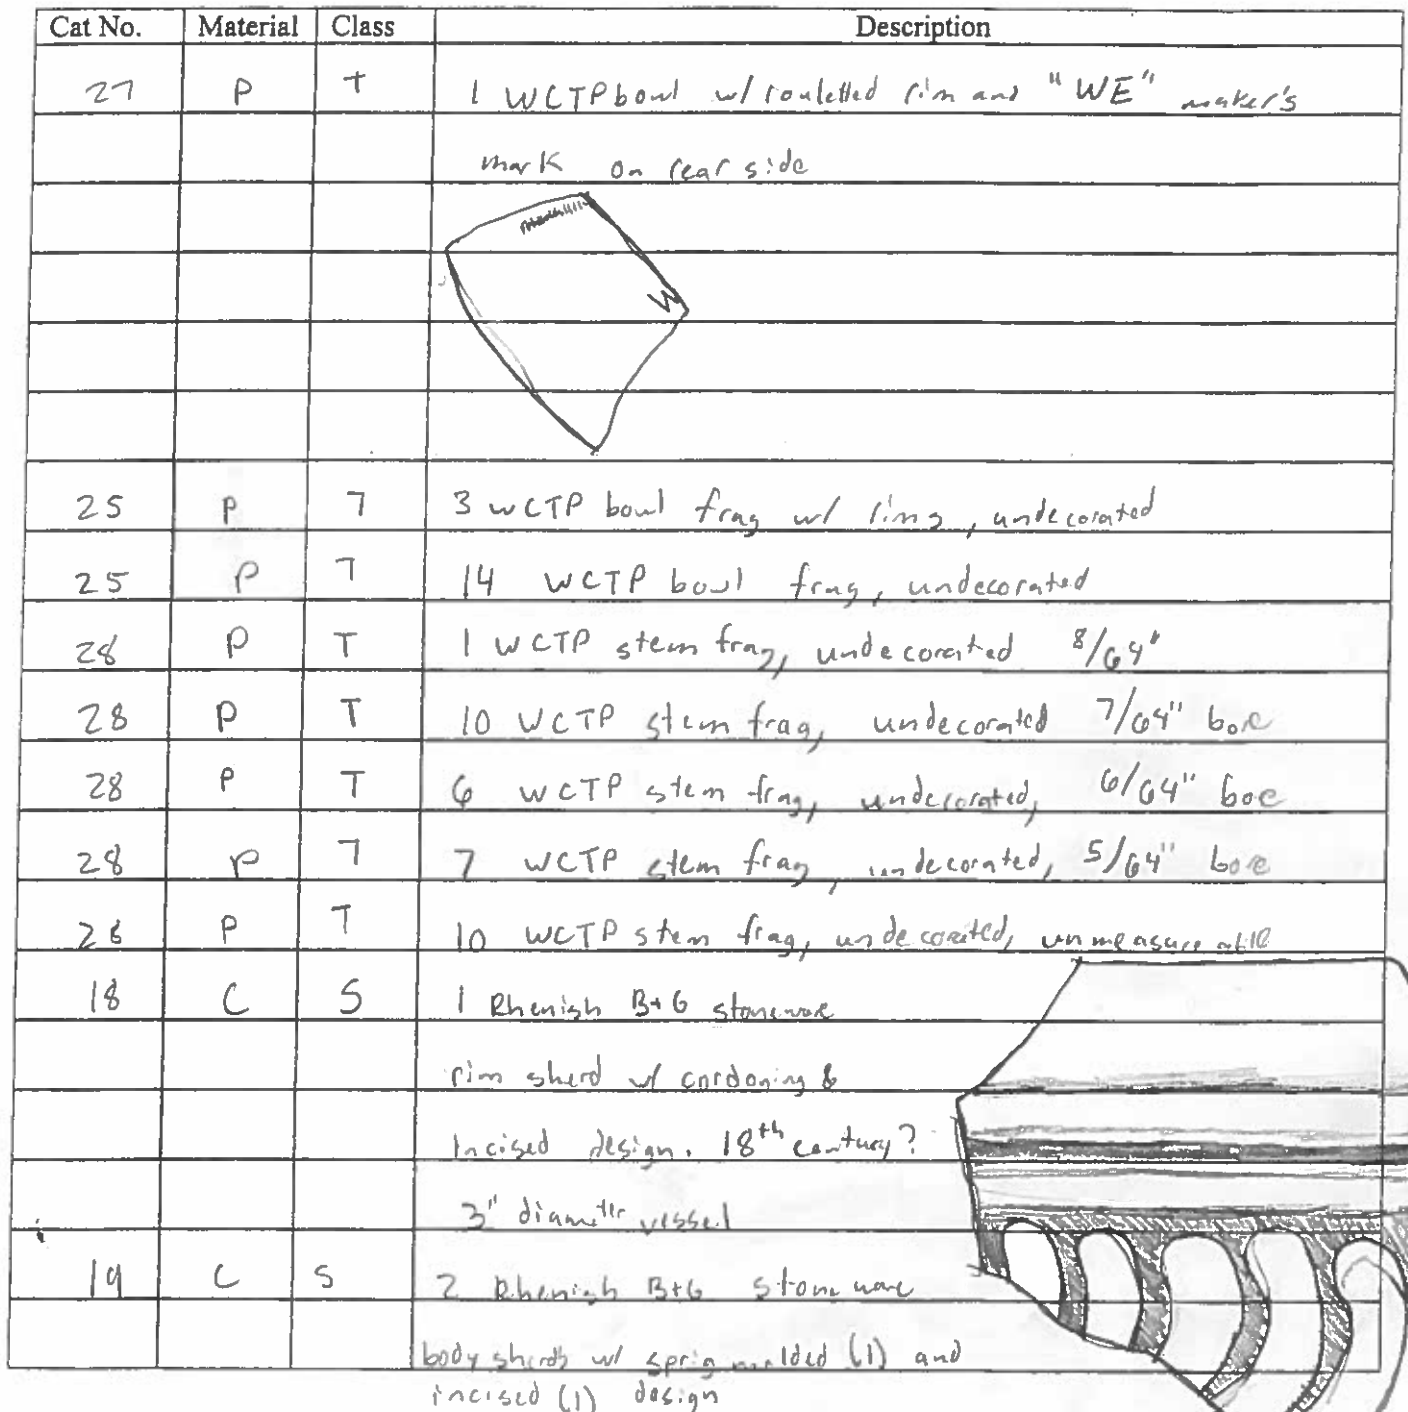 Cat No. Material Class Description
27 P T 1 WCTP bowl w/ rouletted rim and "WE" maker's
mark on rear side
W
25 P T 3 WCTP bowl frag w/ rims, undecorated
25 P T 14 WCTP bowl frag, undecorated
28 P T 1 WCTP stem frag, undecorated 8/64"
28 P T 10 WCTP stem frag, undecorated 7/64" bore
28 P T 6 WCTP stem frag, undecorated, 6/64" bore
28 P T 7 WCTP stem frag, undecorated, 5/64" bore
28 P T 10 WCTP stem frag, undecorated, unmeasureable
18 C S 1 Rhenish B+G stoneware
rim sherd w/ cordoning &
incised design. 18th century?
3" diameter vessel
19 C S 2 Rhenish B+G stoneware
body sherds w/ sprig molded (1) and
incised (1) design